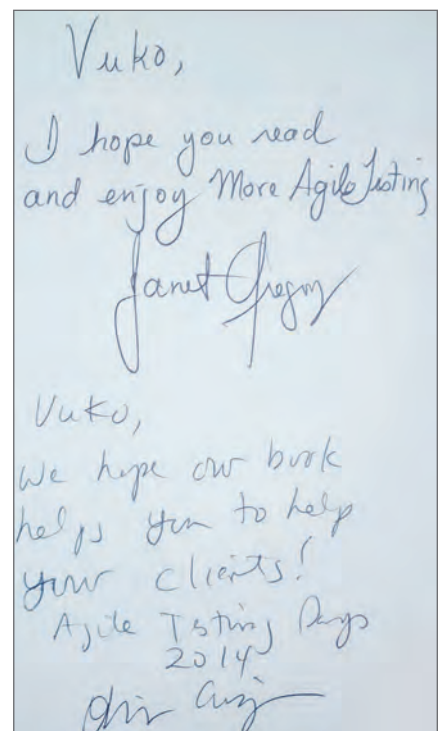 Vuko,
I hope you read
and enjoy More Agile Testing
Janet Gregory
Vuko,
We hope our book
helps you to help
your clients!
Agile Testing Days
2014